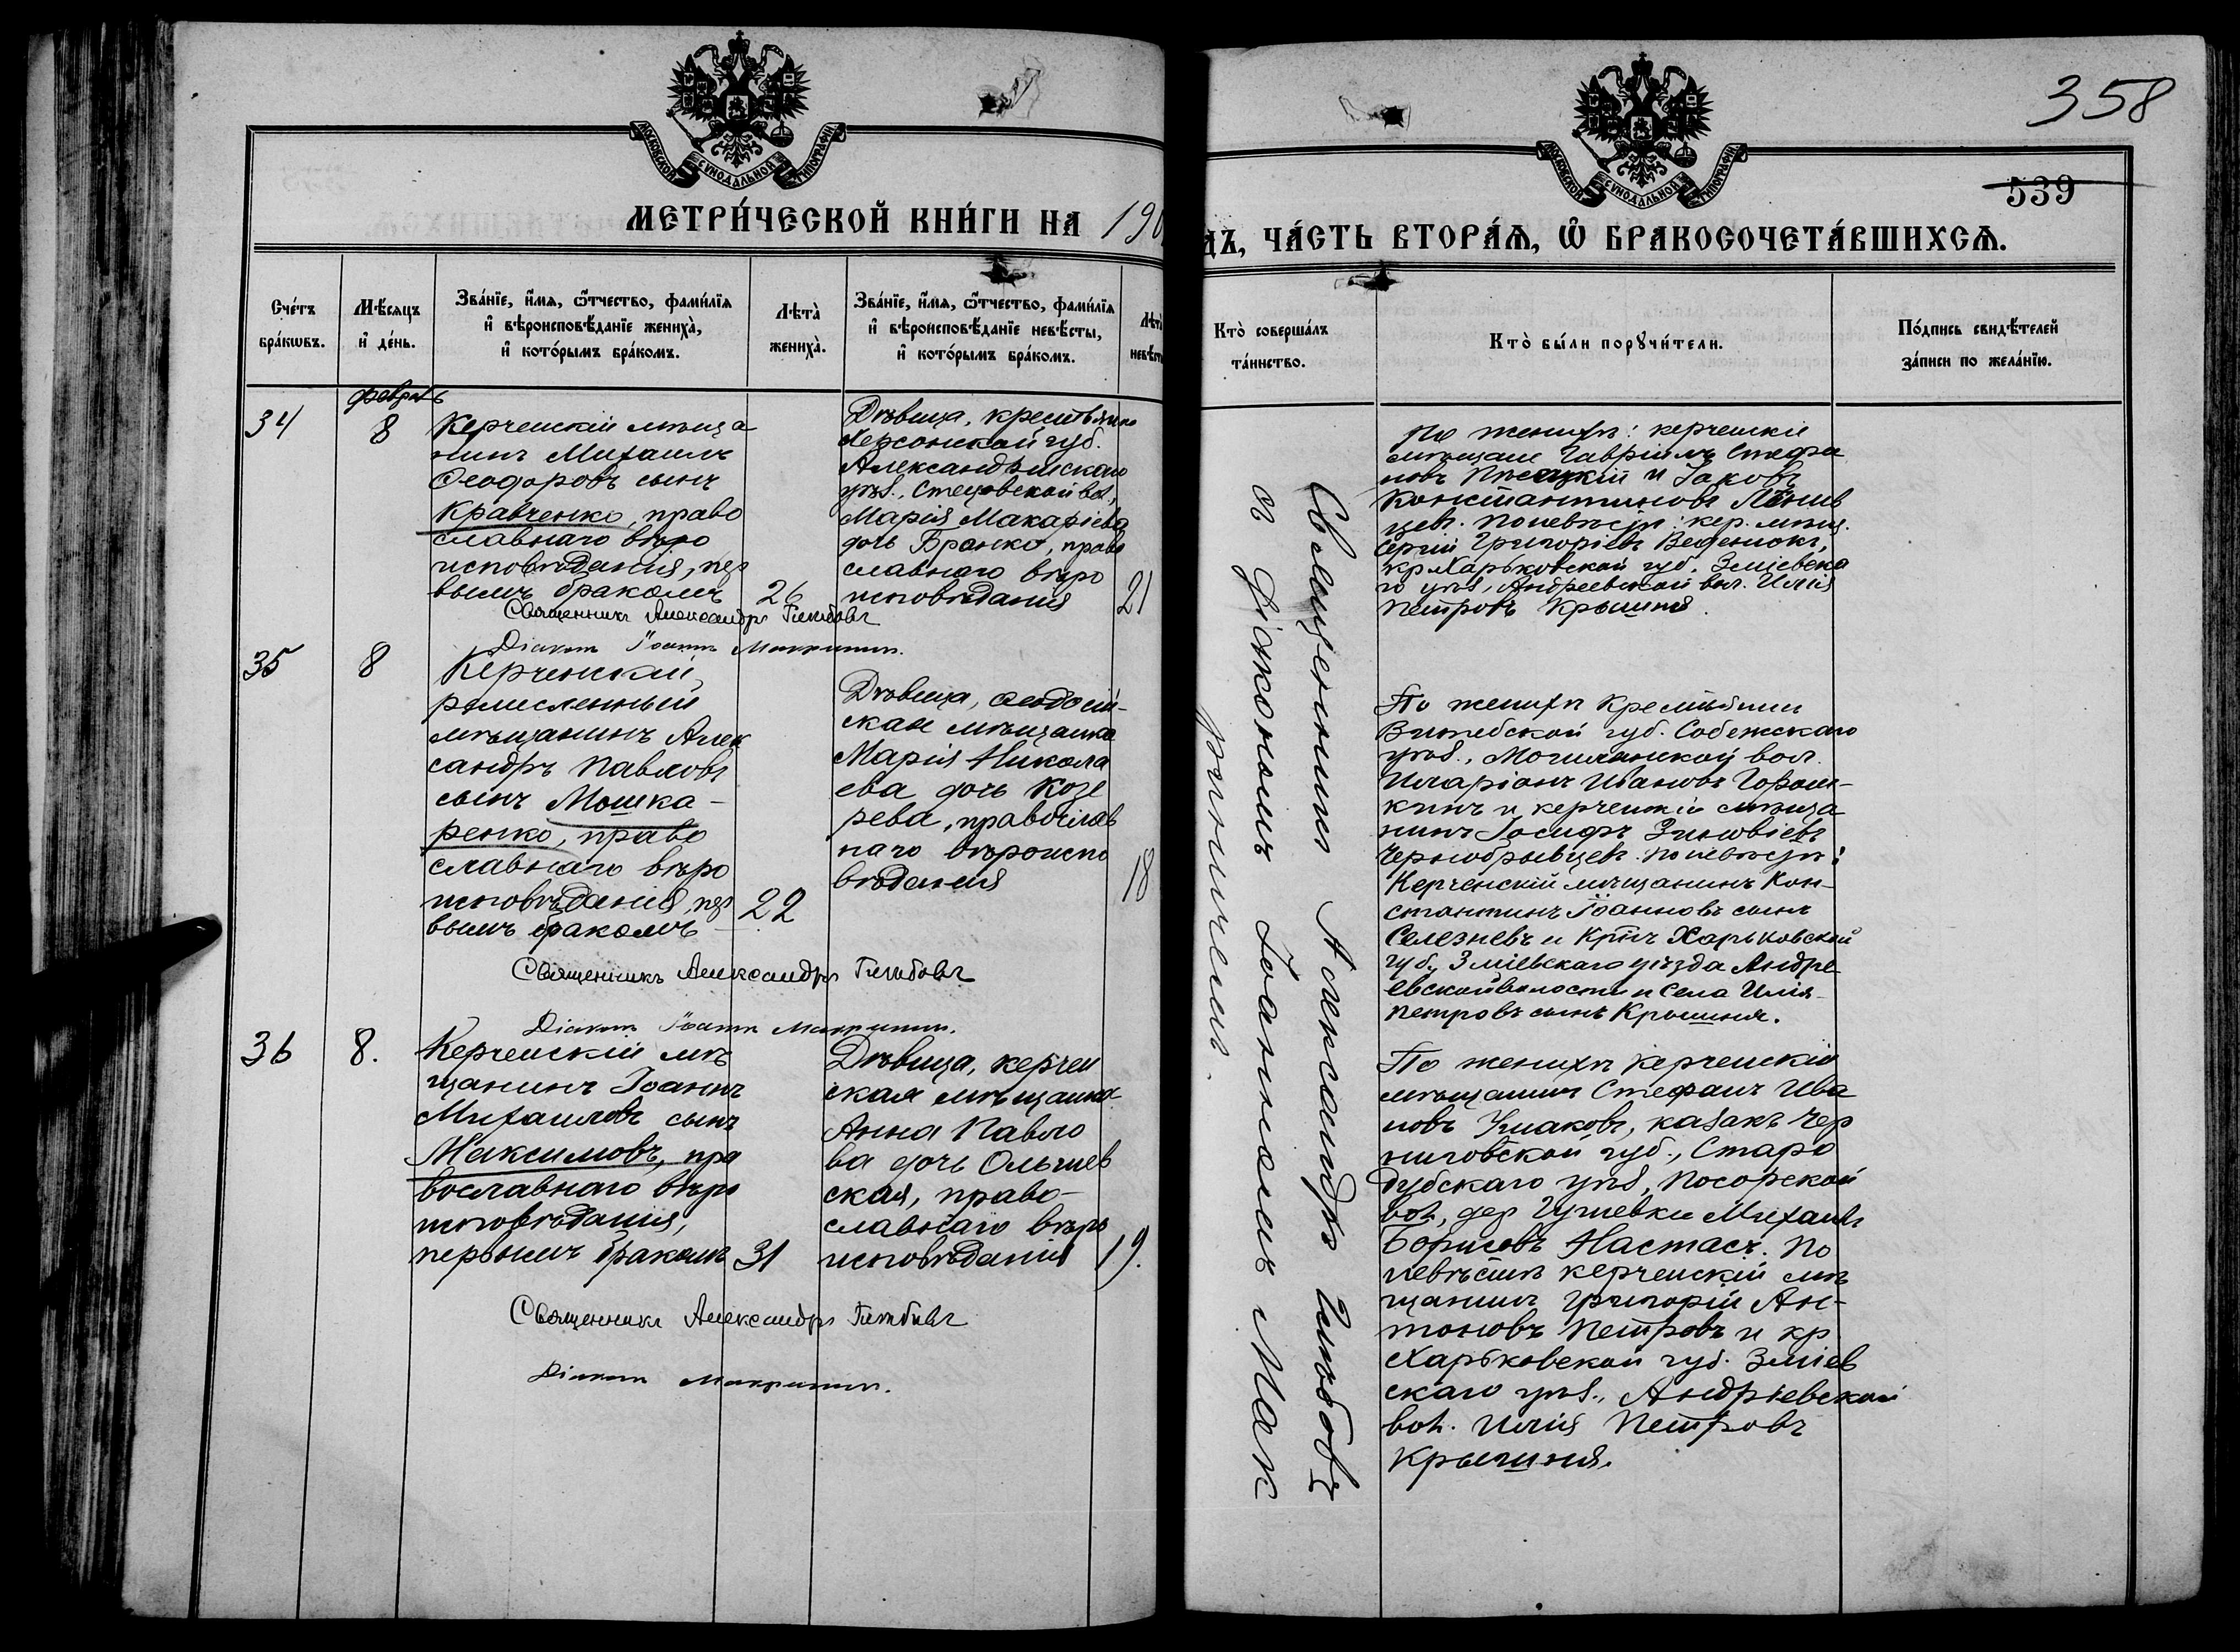 358
539
МОСКОВСКОЙ СѴНОДАЛЬНОЙ ТИПОГРАФІИ
МОСКОВСКОЙ СѴНОДАЛЬНОЙ ТИПОГРАФІИ
МЕТРИ́ЧЕСКОЙ КНИ́ГИ НА 190
ДЪ, ЧА́СТЬ ВТОРА́Ѧ, Ѡ҆ БРАКОСОЧЕТА́ВШИХСѦ.
Сче́тъ
бра́кωвъ.
Мѣ́сѧцъ
и҆ де́нь.
Зва́нїе, и҆́мѧ, ѻ҆́тчество, фами́лїѧ
и҆ вѣроисповѣ́данїе жениха̀,
и҆ кото́рымъ бра́комъ.
Лѣта̀
жениха̀.
Зва́нїе, и҆́мѧ, ѻ҆́тчество, фами́лїѧ
и҆ вѣроисповѣ́данїе невѣ́сты,
и҆ кото́рымъ бра́комъ.
Лѣта̀
невѣс
Кто̀ соверша́лъ
та́инство.
Кто̀ бы́ли порꙋчи́тели.
По́дпись свидѣ́телей
за́писи по жела́нїю.
февраль
34
8
Керченскій мѣща
нинъ Михаилъ
Ѳеодоровъ сынъ
Кравченко, право
славнаго вѣро
исповѣданія, пер
вымъ бракомъ
26
Дѣвица, крестьянка
Херсонской губ.
Александрійскаго
уѣз., Стецовской вол.,
Марія Макаріева
дочь Бранко, право
славнаго вѣро
исповѣданія
21
По женихѣ: керченскіе
мѣщане Гавріилъ Стефа
новъ и Іаковъ
Константиновъ
цевъ. По невѣстѣ: кер. мѣщ.
Сергій Григоріевъ Веденюкъ,
кр. Харьковской губ. Зміевска
го уѣз., Андреевской вол. Илія
Петровъ Крышня.
Священникъ Александръ Глѣбовъ
Діаконъ Іоаннъ Макринин.
35
8
Керченскій
ремесленный
мѣщанинъ Алек
сандръ Павловъ
сынъ Мошка-
ренко, право
славнаго вѣро
исповѣданія, пер
вымъ бракомъ
22
Дѣвица, Ѳеодосій-
ская мѣщанка
Марія Никола
ева дочь Козы
рева, православ
наго вѣроиспо
вѣданія
18
По женихѣ крестьянин
Витебской губ. Себежскаго
уѣз., Могилянской вол.
Иларіонъ Ивановъ Горош-
кинъ и керченскій мѣща
нинъ Іосифъ Зиновіевъ
Чернобрывцевъ. По невѣстѣ:
Керченскій мѣщанинъ Кон-
стантинъ Іоанновъ сынъ
Селезневъ и Кр-нъ Харьковской
губ., Зміевскаго уѣзда Андре
евской волости и села Илія
Петровъ сынъ Крышня.
Священникъ Александръ Глѣбовъ
Діаконъ Іоаннъ Макринин.
36
8.
Керченскій мѣ
щанинъ Іоаннъ
Михаиловъ сынъ
Максимовъ, пра
вославнаго вѣро
исповѣданія,
первымъ бракомъ
31
Дѣвица, керчен
ская мѣщанка
Анна Павло
ва дочь Ольшев
ская, право-
славнаго вѣро
исповѣданія
19.
По женихѣ керченскій
мѣщанинъ Стефанъ Ива
новъ казакъ Чер
ниговской губ., Старо
дубскаго уѣз., Посорской
вол., дер. Гутевки Михаилъ
Борисовъ Настасъ. По
невѣстѣ керченскій мѣ
щанинъ Григорій Ан-
тоновъ Петровъ и кр.
Харьковской губ. Зміев
скаго уѣз., Андреевской
вол. Илія Петровъ
Крышня.
Священникъ Александръ Глѣбовъ
Діаконъ Макринин.
Священникъ Александръ Глѣбовъ
съ Діакономъ Іоанномъ Мак